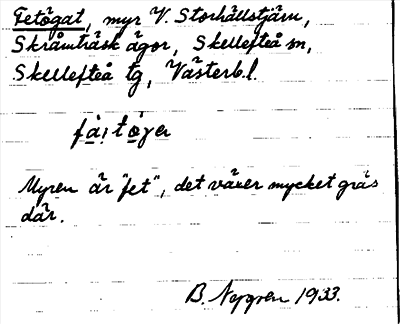 Fetögat, myr V. Storhällstjärn,
Skråmträsk ägor, Skellefteå sn,
Skellefteå tg, Västerb. l.
fàitöγer
Myren är "fet", det växer mycket gräs
där.
B. Nygren 1933.